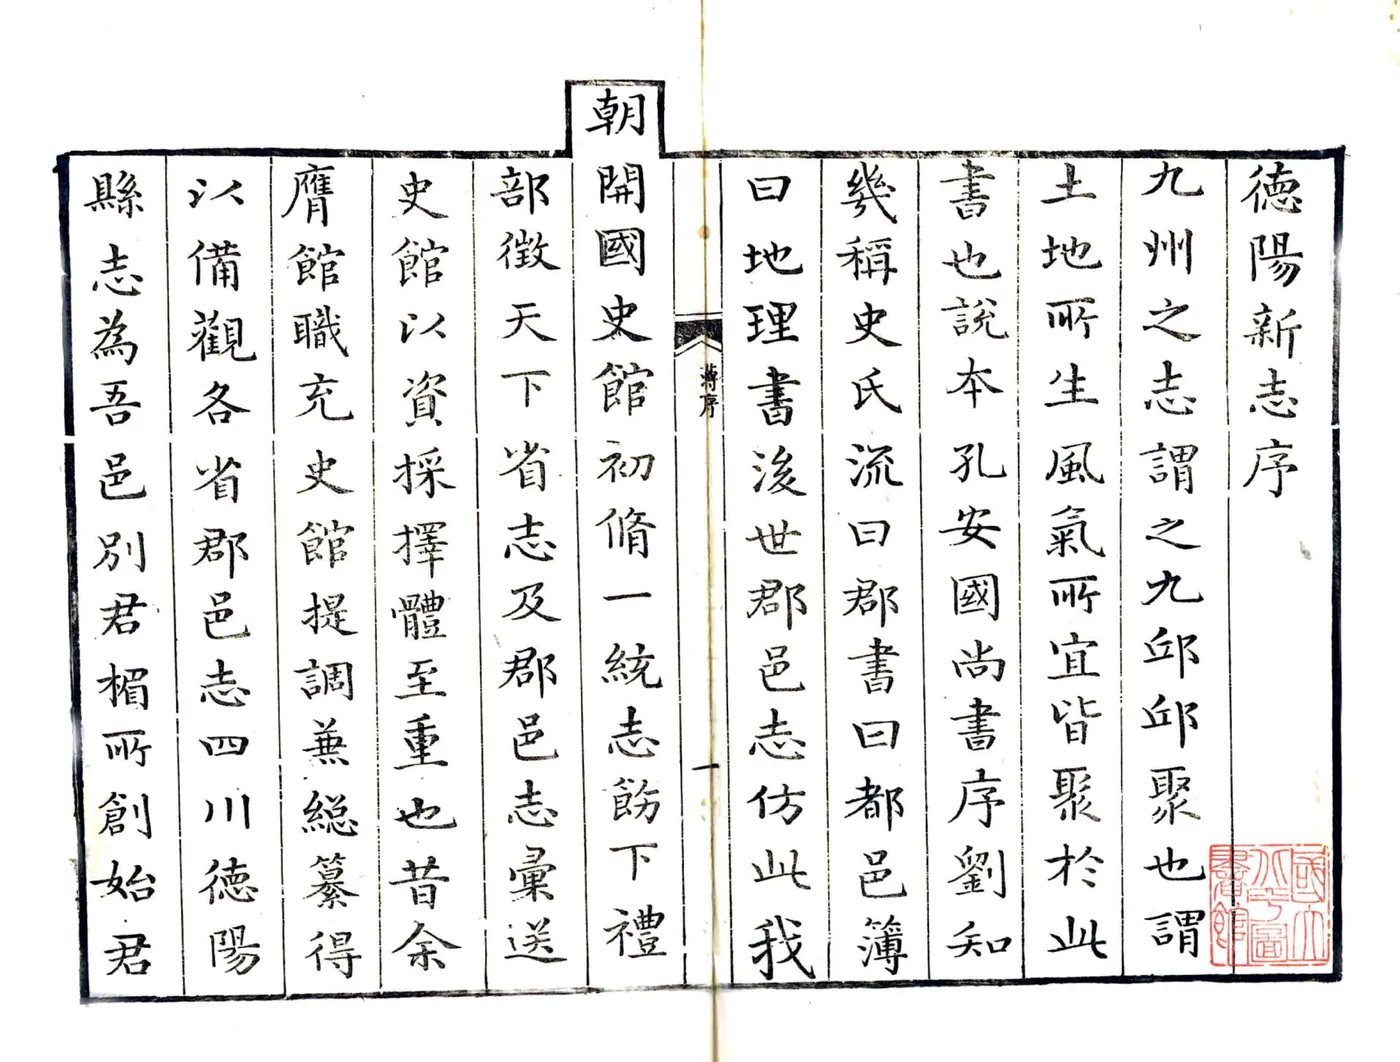 德陽新志序
九州之志謂之九邱邱聚也謂
土地所生風氣所宜皆聚於此
書也說本孔安國尚書序劉知
幾稱史氏流曰郡書曰都邑簿
曰地理書後世郡邑志仿此我
蔣序
一
朝開國史館初脩一統志飭下禮
部徵天下省志及郡邑志彙送
史館以資採擇體至重也昔余
膺館職充史館提調兼総纂得
以備觀各省郡邑志四川德陽
縣志為吾邑別君楣所創始君
國立北平圖書館